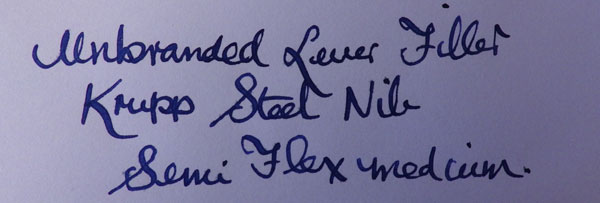 Unbranded Lever Filler
Krupp Steel Nib
Semi Flex medium.